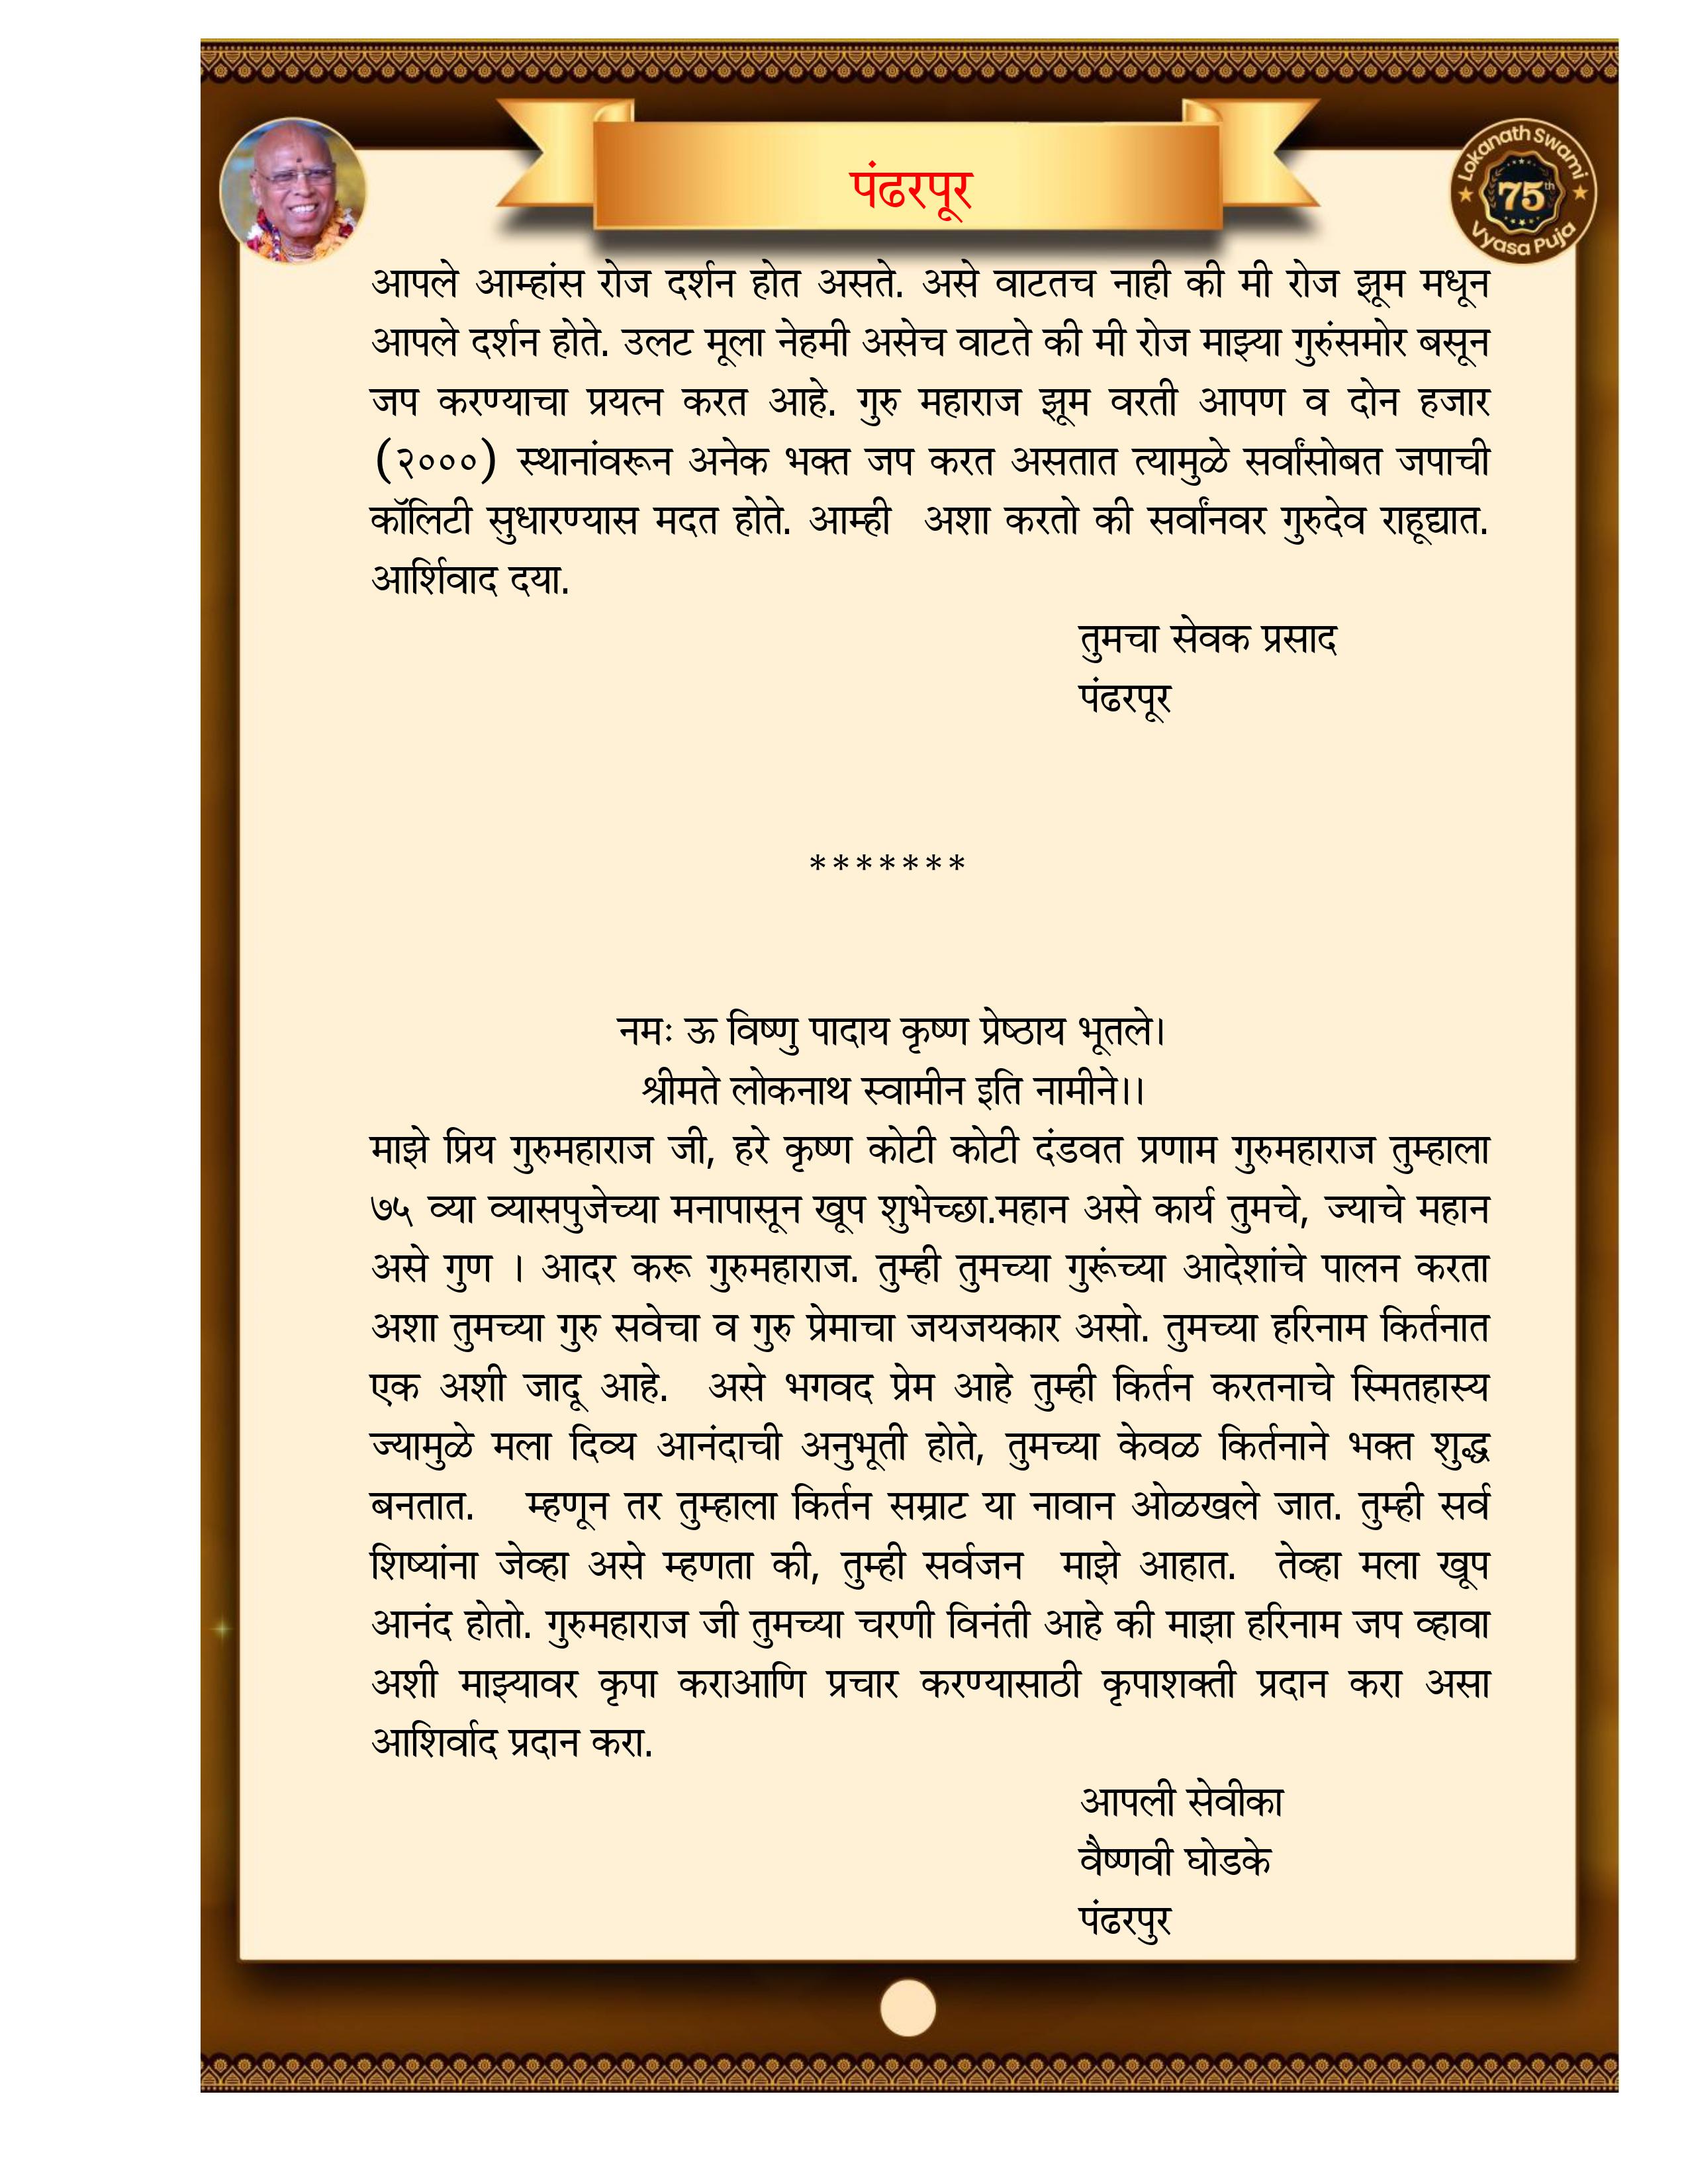 पंढरपूर
Lokanath Swami
75th
Vyasa Puja
आपले आम्हांस रोज दर्शन होत असते. असे वाटतच नाही की मी रोज झूम मधून
आपले दर्शन होते. उलट मूला नेहमी असेच वाटते की मी रोज माझ्या गुरुंसमोर बसून
जप करण्याचा प्रयत्न करत आहे. गुरु महाराज झूम वरती आपण व दोन हजार
(२०००) स्थानांवरून अनेक भक्त जप करत असतात त्यामुळे सर्वांसोबत जपाची
कॉलिटी सुधारण्यास मदत होते. आम्ही अशा करतो की सर्वांनवर गुरुदेव राहूद्यात.
आर्शिवाद दया.
तुमचा सेवक प्रसाद
पंढरपूर
*******
नमः ऊ विष्णु पादाय कृष्ण प्रेष्ठाय भूतले।
श्रीमते लोकनाथ स्वामीन इति नामीने।।
माझे प्रिय गुरुमहाराज जी, हरे कृष्ण कोटी कोटी दंडवत प्रणाम गुरुमहाराज तुम्हाला
७५ व्या व्यासपुजेच्या मनापासून खूप शुभेच्छा.महान असे कार्य तुमचे, ज्याचे महान
असे गुण । आदर करू गुरुमहाराज. तुम्ही तुमच्या गुरूंच्या आदेशांचे पालन करता
अशा तुमच्या गुरु सवेचा व गुरु प्रेमाचा जयजयकार असो. तुमच्या हरिनाम किर्तनात
एक अशी जादू आहे. असे भगवद प्रेम आहे तुम्ही किर्तन करतनाचे स्मितहास्य
ज्यामुळे मला दिव्य आनंदाची अनुभूती होते, तुमच्या केवळ किर्तनाने भक्त शुद्ध
बनतात. म्हणून तर तुम्हाला किर्तन सम्राट या नावान ओळखले जात. तुम्ही सर्व
शिष्यांना जेव्हा असे म्हणता की, तुम्ही सर्वजन माझे आहात. तेव्हा मला खूप
आनंद होतो. गुरुमहाराज जी तुमच्या चरणी विनंती आहे की माझा हरिनाम जप व्हावा
अशी माझ्यावर कृपा कराआणि प्रचार करण्यासाठी कृपाशक्ती प्रदान करा असा
आशिर्वाद प्रदान करा.
आपली सेवीका
वैष्णवी घोडके
पंढरपुर